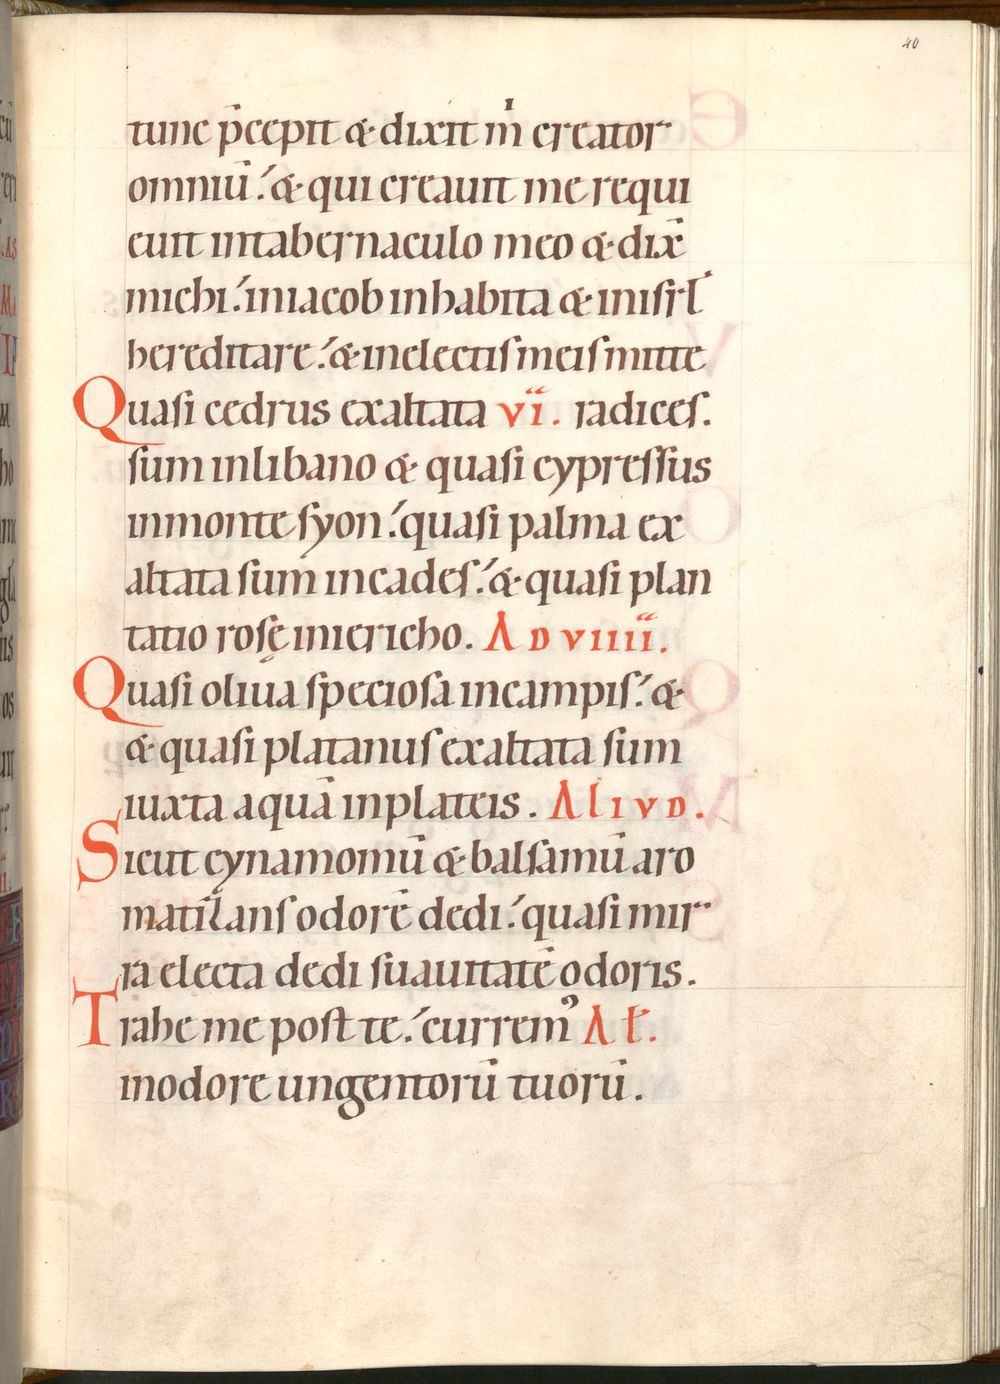 40
tunc p̄cepit & dixit m̍ creator
omniū .' & qui creauit me requi
euit intabernaculo meo & dix̄
michi .' iniacob inhabita & inisrl̄
hereditare .' & inelectis meis mitte
Quasi cedrus exaltata vi. radices.
sum inlibano & quasi cypressus
inmonte syon .' quasi palma ex
altata sum incades .' & quasi plan
tatio rosę iniericho. AD VIIII.
Quasi oliua speciosa incampis .' &
& quasi platanus exaltata sum
iuxta aquā inplateis. ALIVD.
Sicut cynamomū & balsamū aro
matizans odorē dedi .' quasi mir
ra electa dedi suauitatē odoris.
Trahe me post te .' currem᾽ Al̄.
inodore ungentorū tuorū.